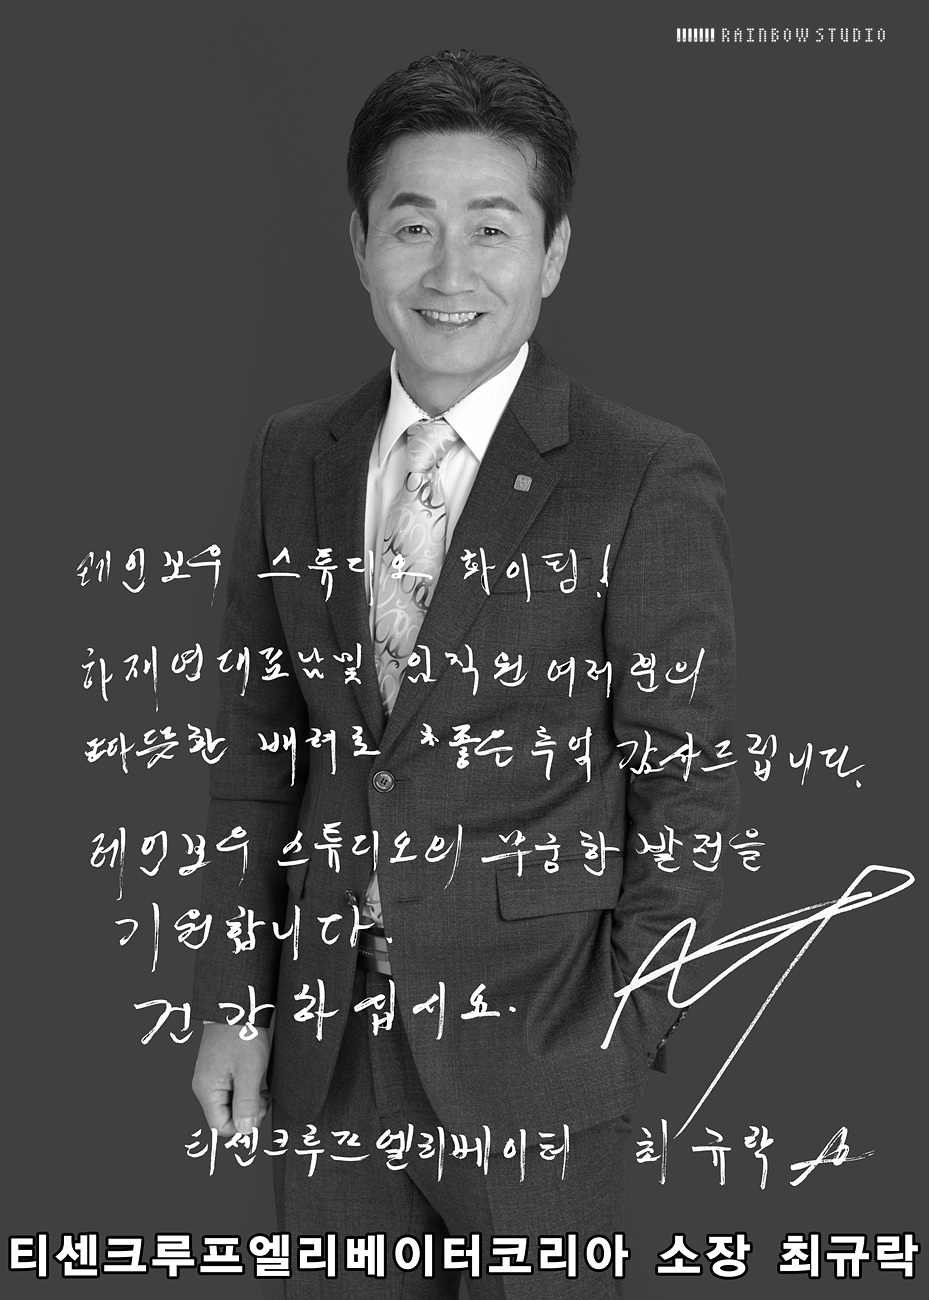 RAINBOW STUDIO
레인보우 스튜디오 화이팅!
하재연대표님및 임직원 여러분의
따뜻한 배려로 좋은 추억 감사드립니다.
레인보우 스튜디오의 무궁한 발전을
기원합니다.
건강하십시요.
티센크루프엘리베이터 최규락
티센크루프엘리베이터코리아 소장 최규락